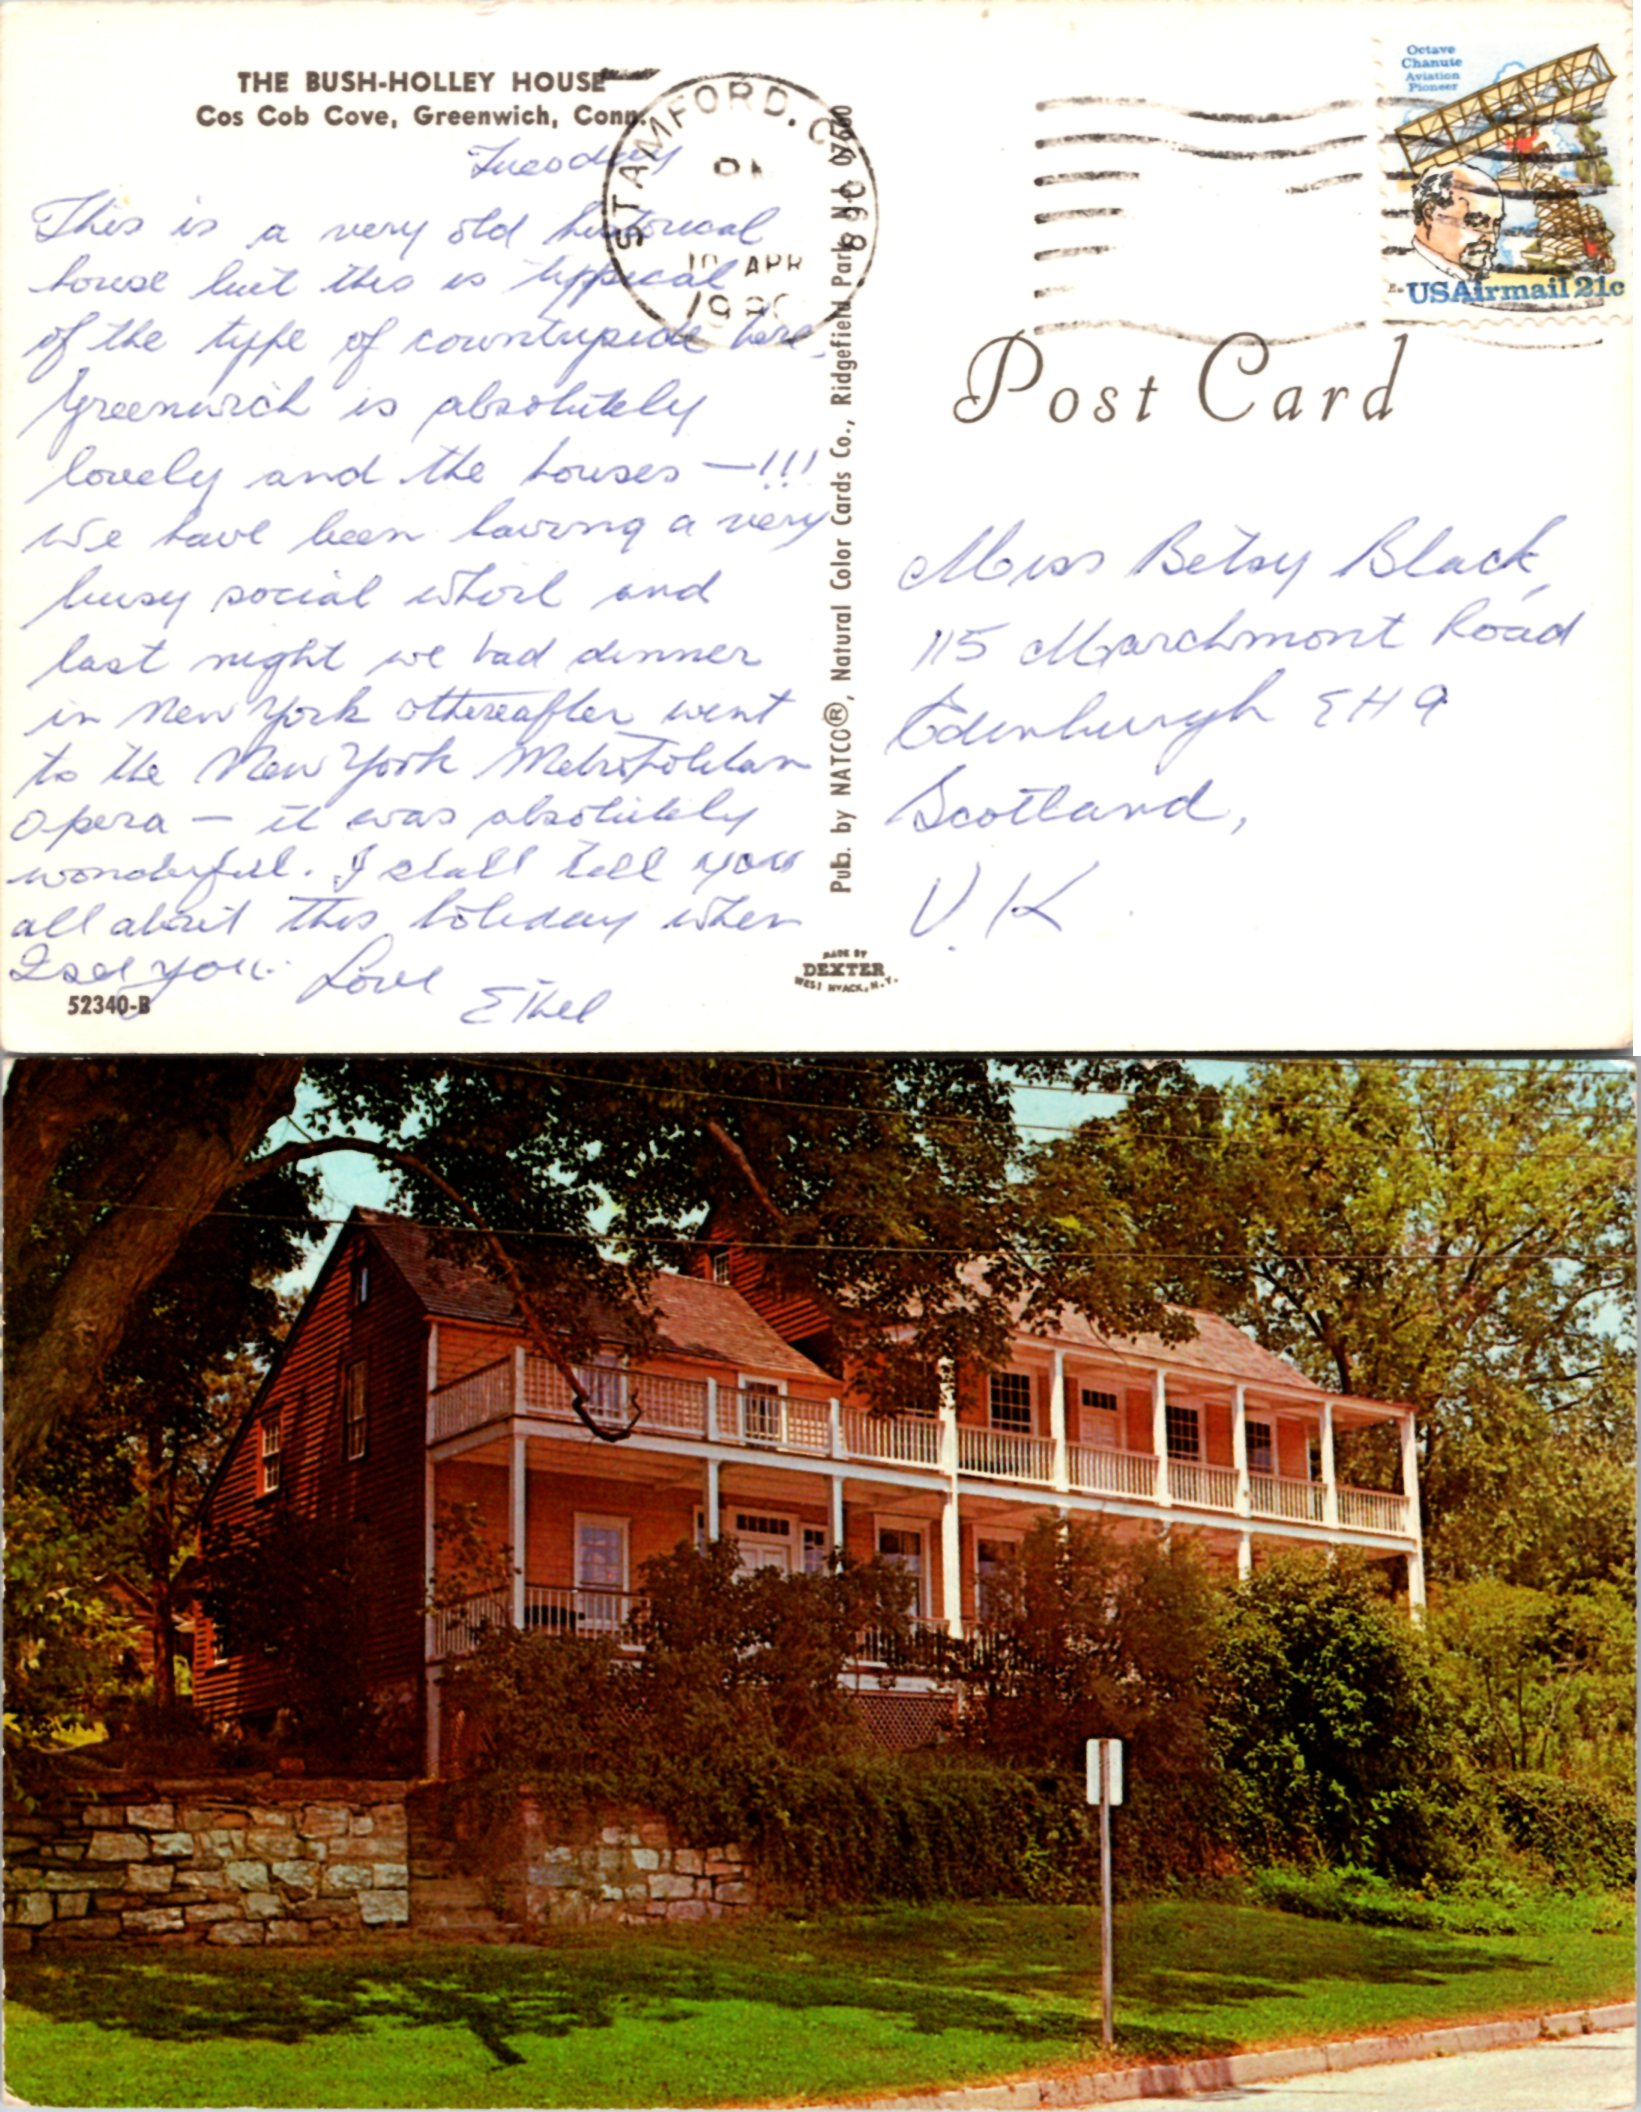 THE BUSH-HOLLEY HOUSE
Cos Cob Cove, Greenwich, Conn.
Tuesday
This is a very old historical
house but this is typpical
of the type of countryside here.
Greenwich is absolutely
lovely and the houses — !!!
We have been having a very
busy social whirl and
last night we had dinner
in New York & thereafter went
to the New York Metropolitan
Opera — it was absolutely
wonderful. I shall tell you
all about this holiday when
I see you. Love
Ethel
52340-B
STAMFORD. C
PM
10 APR
1980
069
Pub. by NATCO®, Natural Color Cards Co., Ridgefield Park, N.J. 07660
MADE BY
DEXTER
WEST NYACK, N.Y.
Octave
Chanute
Aviation
Pioneer
USAirmail 21c
Post Card
Miss Betsy Black,
115 Marchmont Road
Edinburgh EH9
Scotland,
U.K.